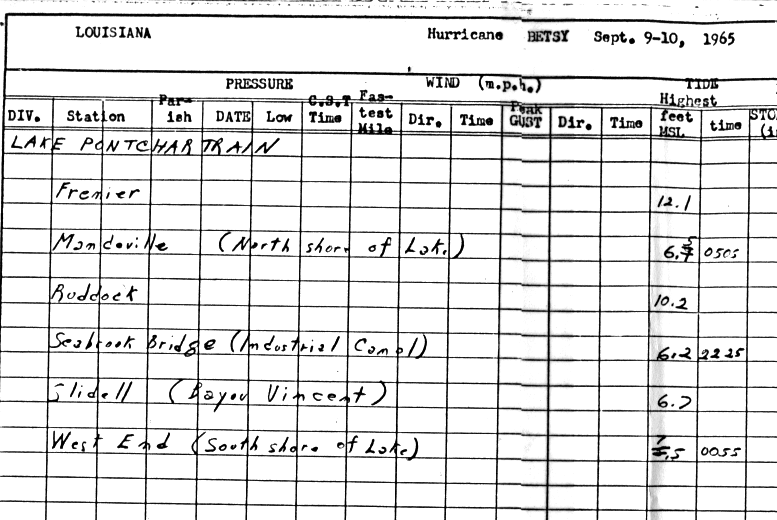 LOUISIANA Hurricane BETSY Sept. 9-10, 1965
PRESSURE WIND (m.p.h.) TIDE
Par- C.S.T Fas- Peak Highest
DIV. Station ish DATE Low Time test Dir. Time GUST Dir. Time feet time
Mile MSL
LAKE PONTCHARTRAIN
Frenier 12.1
Mandeville (North shore of Lake) 6.5 0505
Ruddock 10.2
Seabrook Bridge (Industrial Canal) 6.2 2225
Slidell (Bayou Vincent) 6.7
West End (South shore of Lake) 7.5 0055